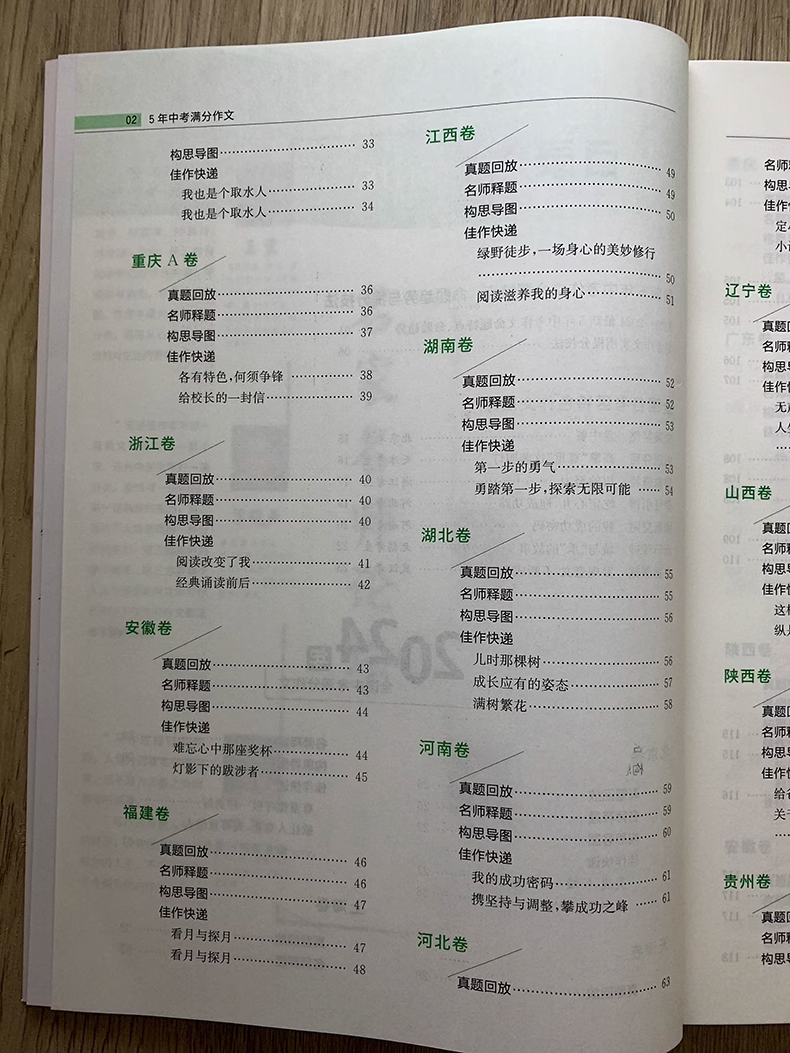 02 5年中考满分作文
构思导图 33
佳作快递
我也是个取水人 33
我也是个取水人 34
重庆A卷
真题回放 36
名师释题 36
构思导图 37
佳作快递
各有特色,何须争锋 38
给校长的一封信 39
浙江卷
真题回放 40
名师释题 40
构思导图 40
佳作快递
阅读改变了我 41
经典诵读前后 42
安徽卷
真题回放 43
名师释题 43
构思导图 44
佳作快递
难忘心中那座奖杯 44
灯影下的跋涉者 45
福建卷
真题回放 46
名师释题 46
构思导图 47
佳作快递
看月与探月 47
看月与探月 48
江西卷
真题回放 49
名师释题 49
构思导图 50
佳作快递
绿野徒步,一场身心的美妙修行
50
阅读滋养我的身心 51
湖南卷
真题回放 52
名师释题 52
构思导图 53
佳作快递
第一步的勇气 53
勇踏第一步,探索无限可能 54
湖北卷
真题回放 55
名师释题 55
构思导图 56
佳作快递
儿时那棵树 56
成长应有的姿态 57
满树繁花 58
河南卷
真题回放 59
名师释题 59
构思导图 60
佳作快递
我的成功密码 61
携坚持与调整,攀成功之峰 61
河北卷
真题回放 63
名师释
构思导
佳作快
辽宁卷
真题
名师释
构思导
佳作快
无
人生
山西卷
真题
名师释
构思导
佳作快
陕西卷
真题
名师释
构思导
佳作快
给
关于
贵州卷
真题回
名师释
构思导